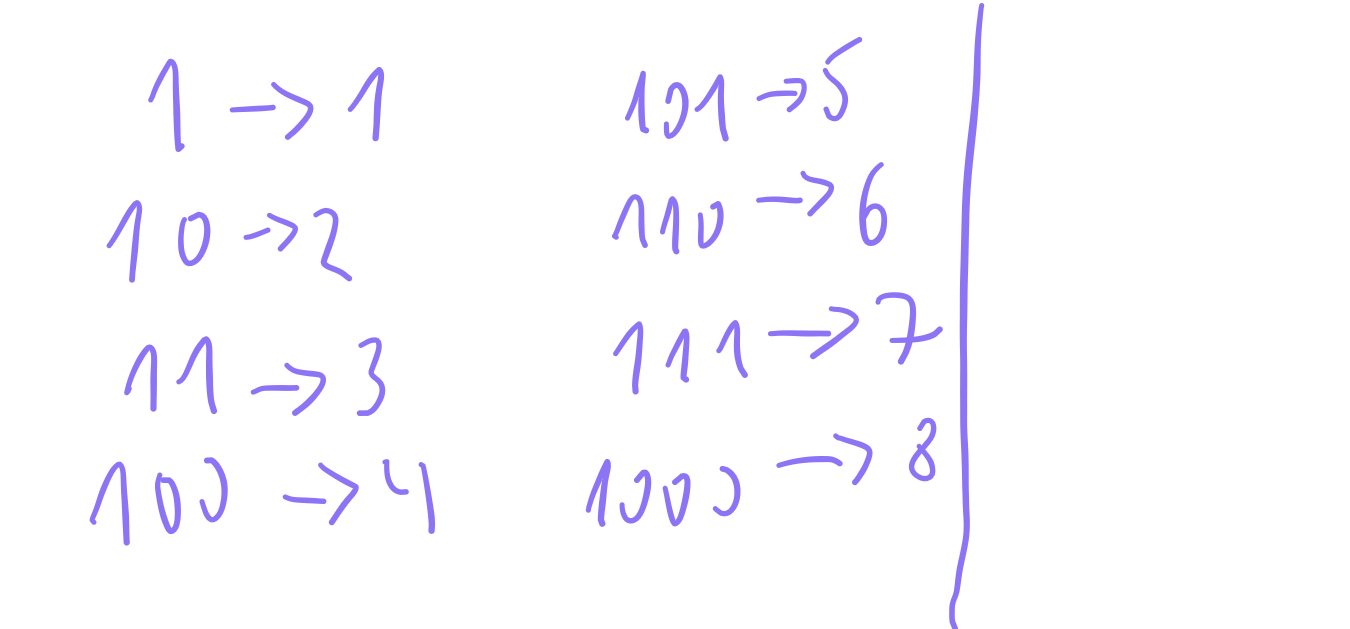 1 → 1
10 → 2
11 → 3
100 → 4
101 → 5
110 → 6
111 → 7
1000 → 8